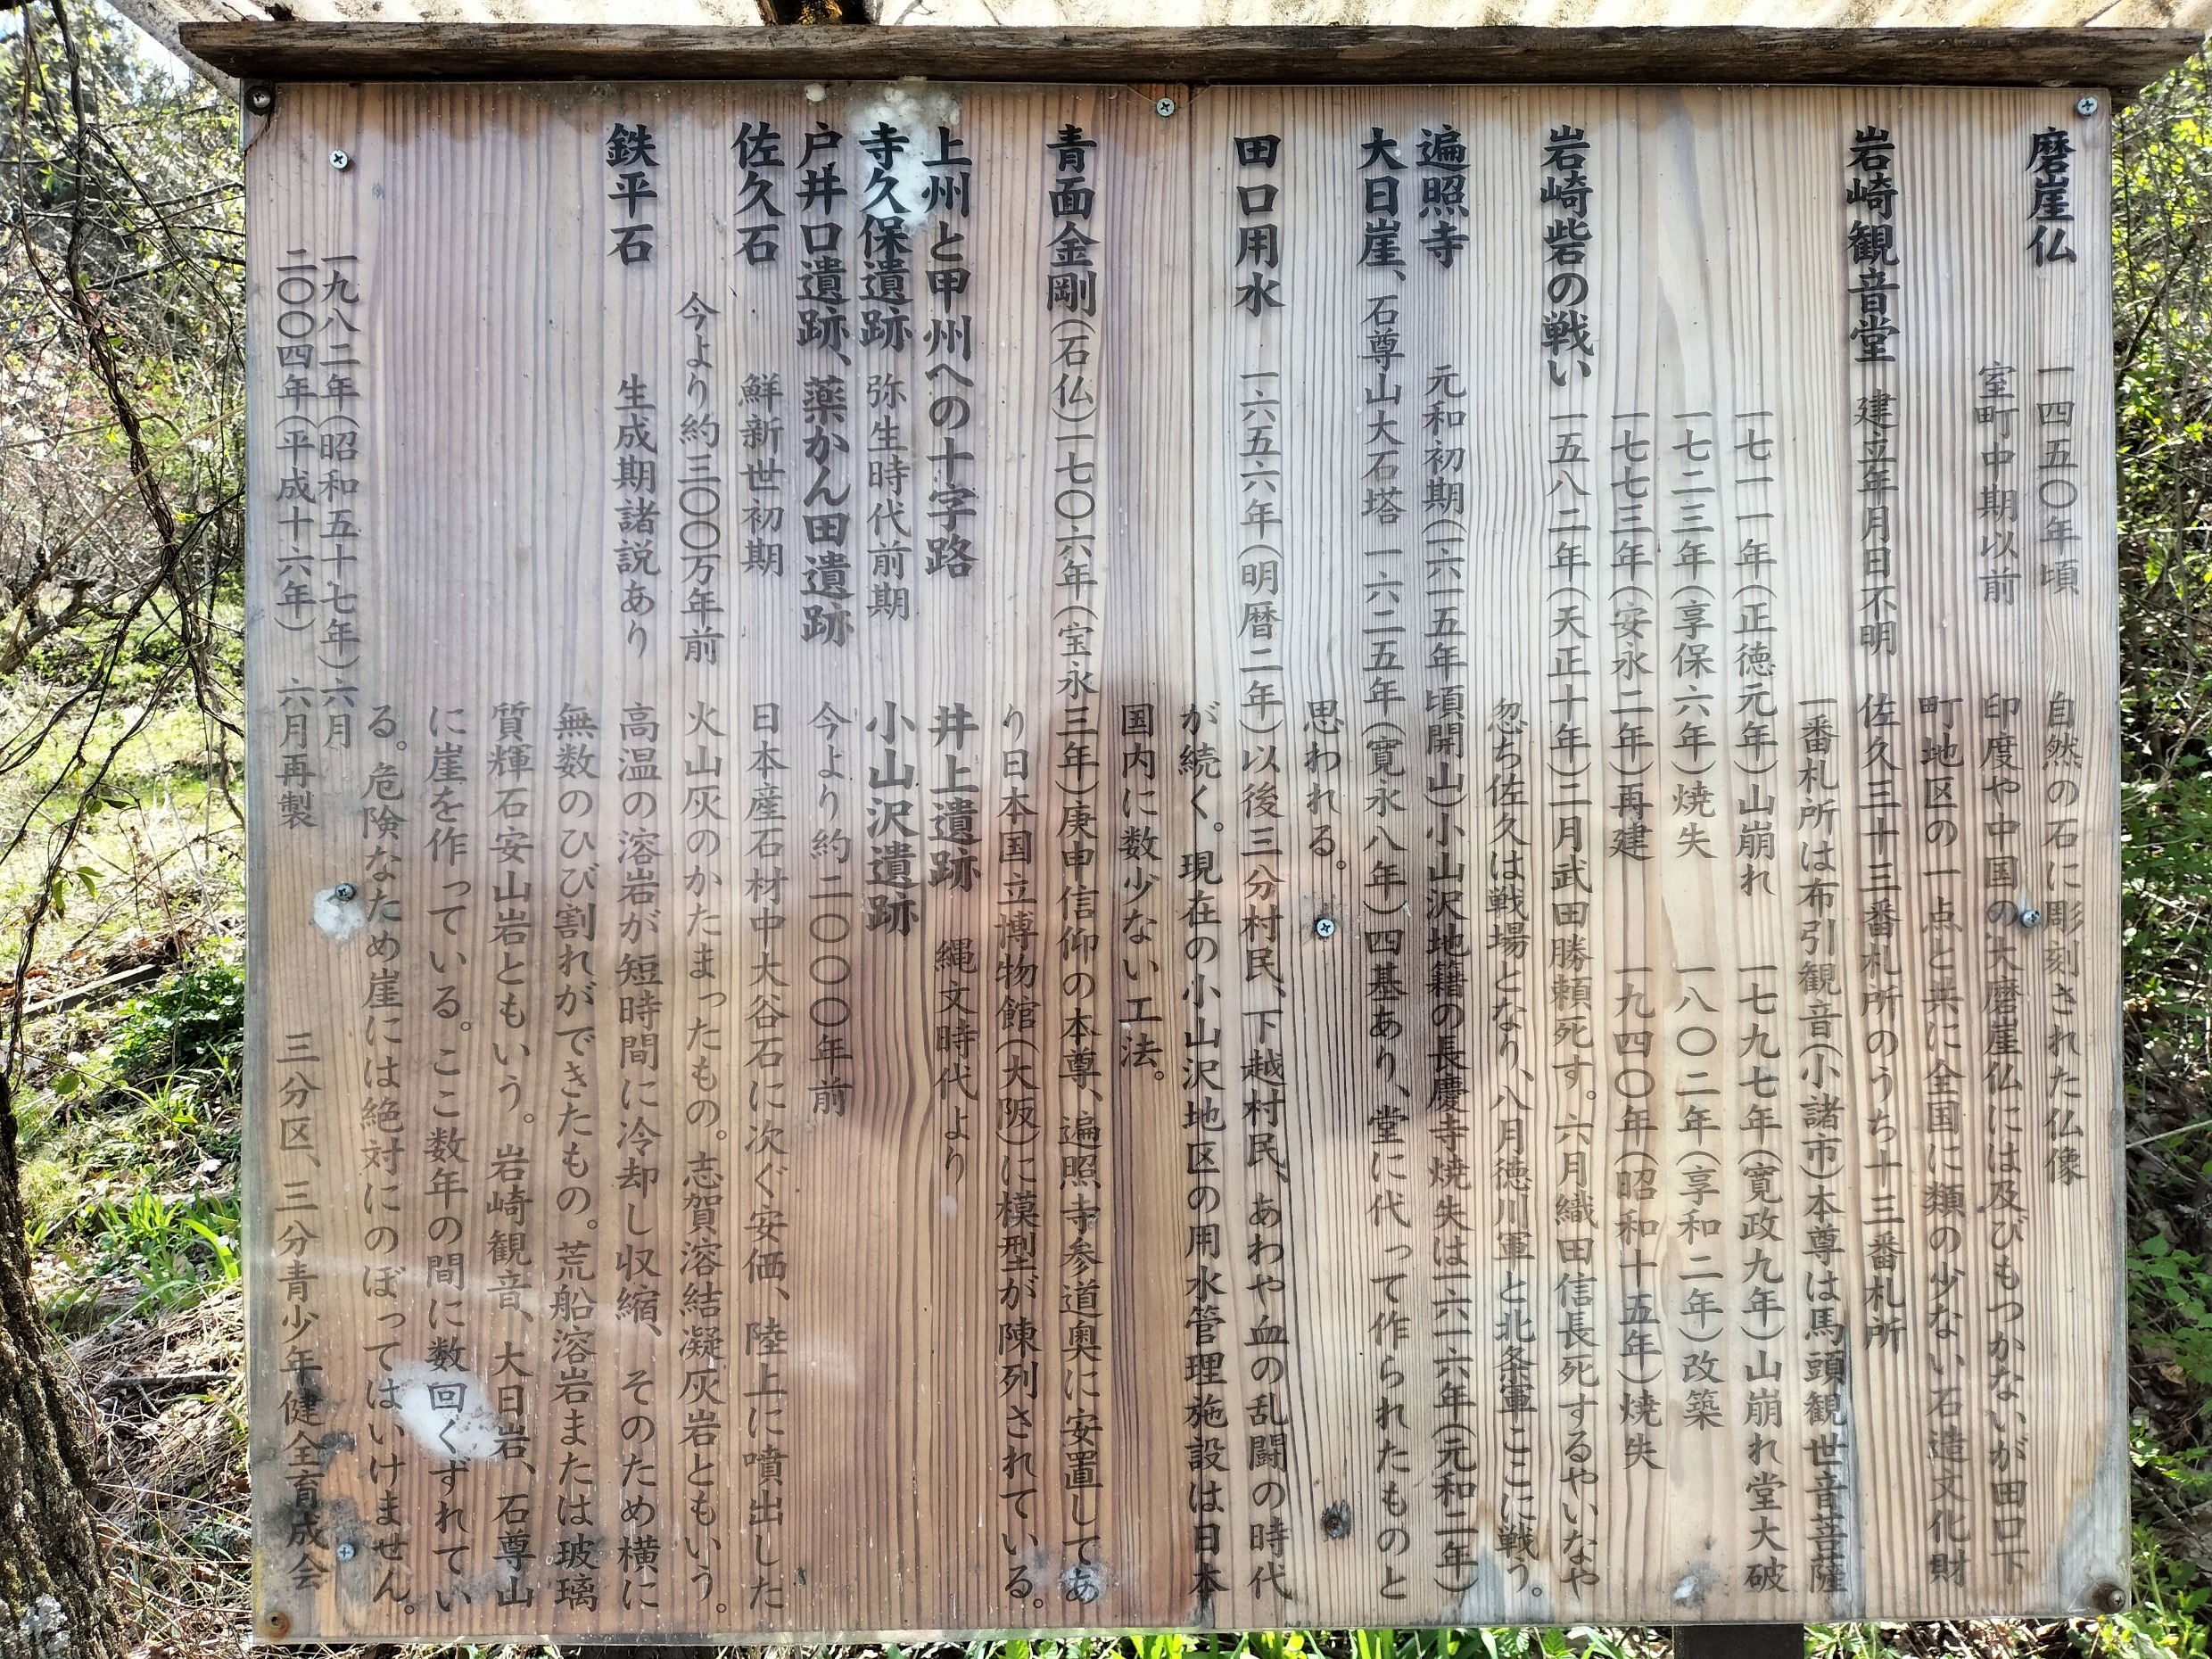 磨崖仏　一四五〇年頃　自然の石に彫刻された仏像
室町中期以前　印度や中国の大磨崖仏には及びもつかないが田口下
町地区の一点と共に全国に類の少ない石造文化財
岩崎観音堂　建立年月日不明　佐久三十三番札所のうち十三番札所
一番札所は布引観音(小諸市)本尊は馬頭観世音菩薩
一七一一年(正徳元年)山崩れ　一七九七年(寛政九年)山崩れ堂大破
一七二三年(享保六年)焼失　一八〇二年(享和二年)改築
一七七三年(安永二年)再建　一九四〇年(昭和十五年)焼失
岩崎砦の戦い　一五八二年(天正十年)二月武田勝頼死す。六月織田信長死するやいなや
忽ち佐久は戦場となり、八月徳川軍と北条軍ここに戦う。
遍照寺　元和初期(一六一五年頃開山)小山沢地籍の長慶寺焼失は一六一六年(元和二年)
大日崖、石尊山大石塔　一六二五年(寛永八年)四基あり、堂に代って作られたものと
思われる。
田口用水　一六五六年(明暦二年)以後三分村民、下越村民、あわや血の乱闘の時代
が続く。現在の小山沢地区の用水管理施設は日本
国内に数少ない工法。
青面金剛(石仏)一七〇六年(宝永三年)庚申信仰の本尊、遍照寺参道奥に安置してあ
り日本国立博物館(大阪)に模型が陳列されている。
上州と甲州への十字路　井上遺跡　縄文時代より
寺久保遺跡　弥生時代前期　小山沢遺跡
戸井口遺跡、薬かん田遺跡　今より約二〇〇〇年前
佐久石　鮮新世初期　日本産石材中大谷石に次ぐ安価、陸上に噴出した
今より約三〇〇万年前　火山灰のかたまったもの。志賀溶結凝灰岩ともいう。
鉄平石　生成期諸説あり　高温の溶岩が短時間に冷却し収縮、そのため横に
無数のひび割れができたもの。荒船溶岩または玻璃
質輝石安山岩ともいう。岩崎観音、大日岩、石尊山
に崖を作っている。ここ数年の間に数回くずれてい
る。危険なため崖には絶対にのぼってはいけません。
一九八二年(昭和五十七年)六月
二〇〇四年(平成十六年)　六月再製　三分区、三分青少年健全育成会